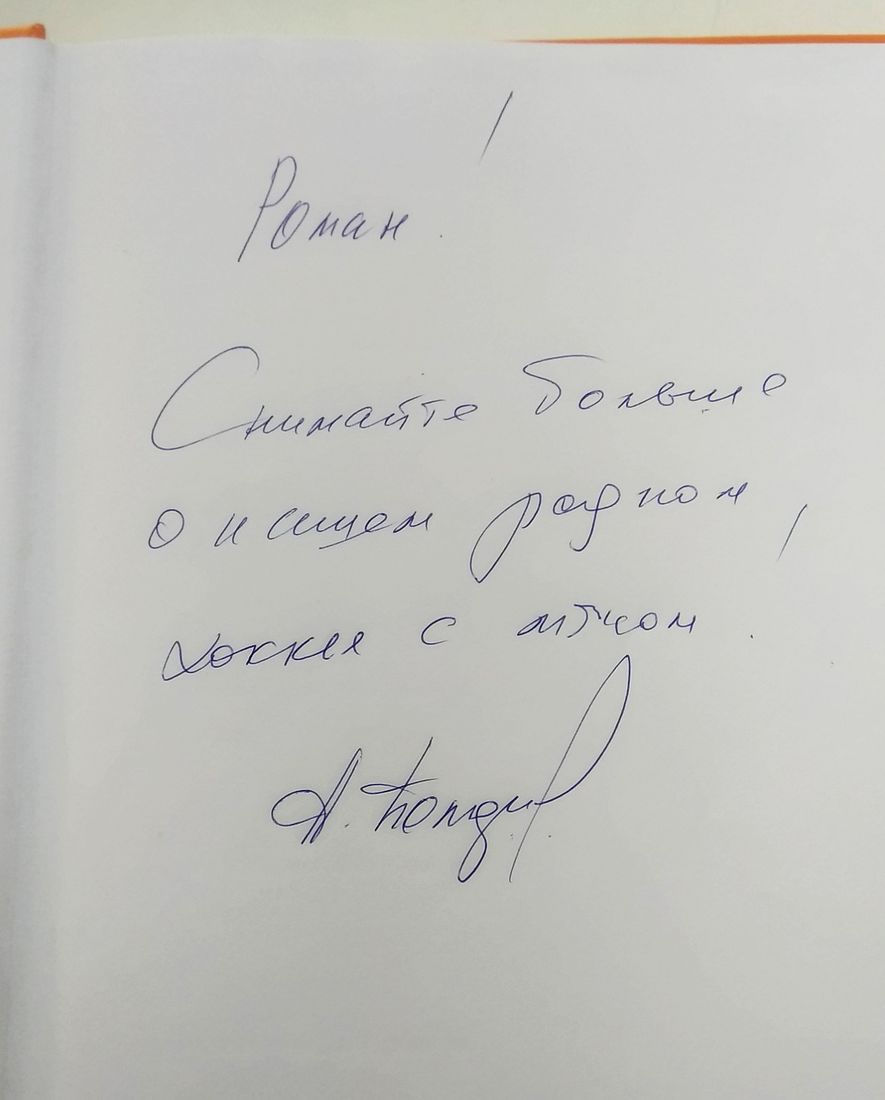 Роман!
Снимайте больше
о нашем родном
хоккее с мячом!
А.